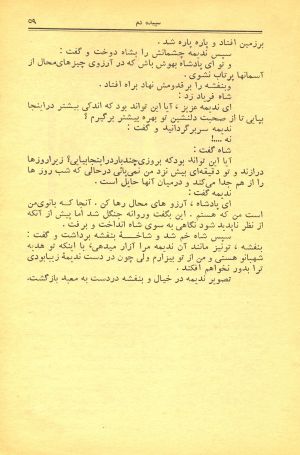 سپیده دم ۵۹
برزمین افتاد و پاره پاره شد .
سپس ندیمه چشمانش را بشاه دوخت و گفت :
و تو ای پادشاه بهوش باش که در آرزوی چیزهای محال از
آسمانها پرتاب نشوی .
وبنفشه را بر قدومش نهاد براه افتاد .
شاه فریاد زد :
ای ندیمه عزیز ، آیا این تواند بود که اندکی بیشتر دراینجا
بپایی تا از صحبت دلنشین تو بهره بیشتر برگیرم ؟
ندیمه سربرگردانید و گفت :
نه ....!
شاه گفت :
آیا این تواند بودکه بروزی چندبار در اینجا بیایی؟ زیرا روزها
درازند و تو دقیقه‌ای بیش نزد من نمی‌پائی درحالی که شب روز ها
را از هم جدا می‌کند و درمیان آنها حایل است .
ندیمه گفت :
ای پادشاه ، آرزو های محال رها کن . آنجا کـه بانوی‌من
است من که هستم . این بگفت وروانه جنگل شد اما پیش از آنکه
از نظر ناپدید شود نگاهی به سوی شاه انداخت و برفت .
سپس شاه خم شد و شاخـــۀ بنفشه برداشت و گفت :
بنفشه ، تونیز مانند آن ندیمه مرا آزار میدهی، با اینکه تو هدیه
شهبانو هستی و من از تو بیزارم ولی چون در دست ندیمۀ زیبا بودی
ترا بدور نخواهم افکند .
تصویر ندیمه در خیال و بنفشه دردست به معبد بازگشت.